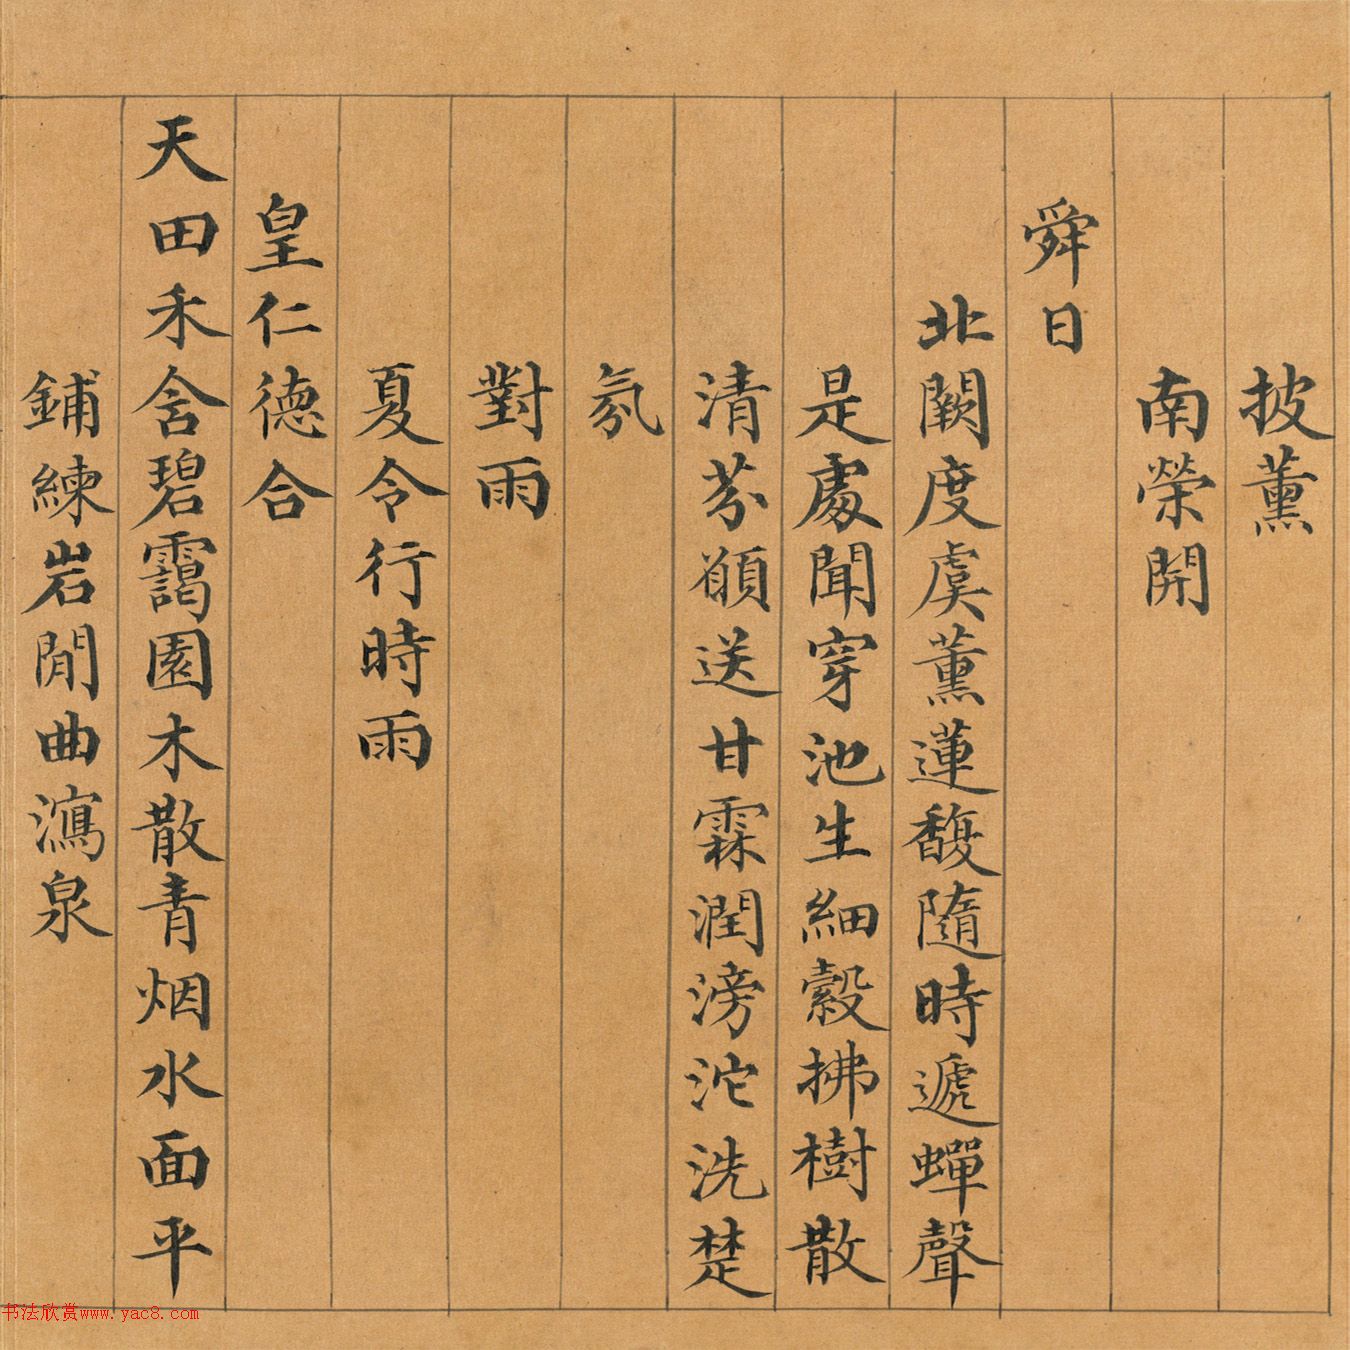 披薰
南榮開
舜日
北闕度虞薰蓮馥隨時遞蟬聲
是處聞穿池生細縠拂樹散
清芬願送甘霖潤滂沱洗楚
氛
對雨
夏令行時雨
皇仁德合
天田禾含碧靄園木散青烟水面平
鋪練岩閒曲瀉泉
书法欣赏www.yac8.com